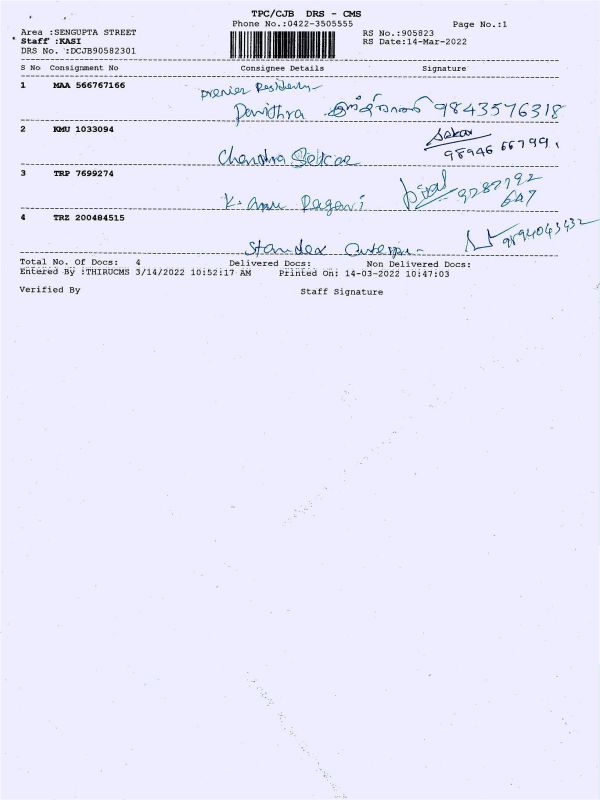 TPC/CJB DRS - CMS
Phone No.:0422-3505555 Page No.:1
Area :SENGUPTA STREET RS No.:905823
Staff :KASI RS Date:14-Mar-2022
DRS No. :DCJB90582301
S No Consignment No Consignee Details Signature
1 MAA 566767166 Premier Residency
Pavithra 9843576318
2 KMU 1033094 Sekar
Chandra Sekar 98946 66799
3 TRP 7699274
K. Anu Ragavi 9787792
647
4 TRZ 200484515
Standex 9894043432
Total No. Of Docs: 4 Delivered Docs: Non Delivered Docs:
Entered By :THIRUCMS 3/14/2022 10:52:17 AM Printed On: 14-03-2022 10:47:03
Verified By Staff Signature